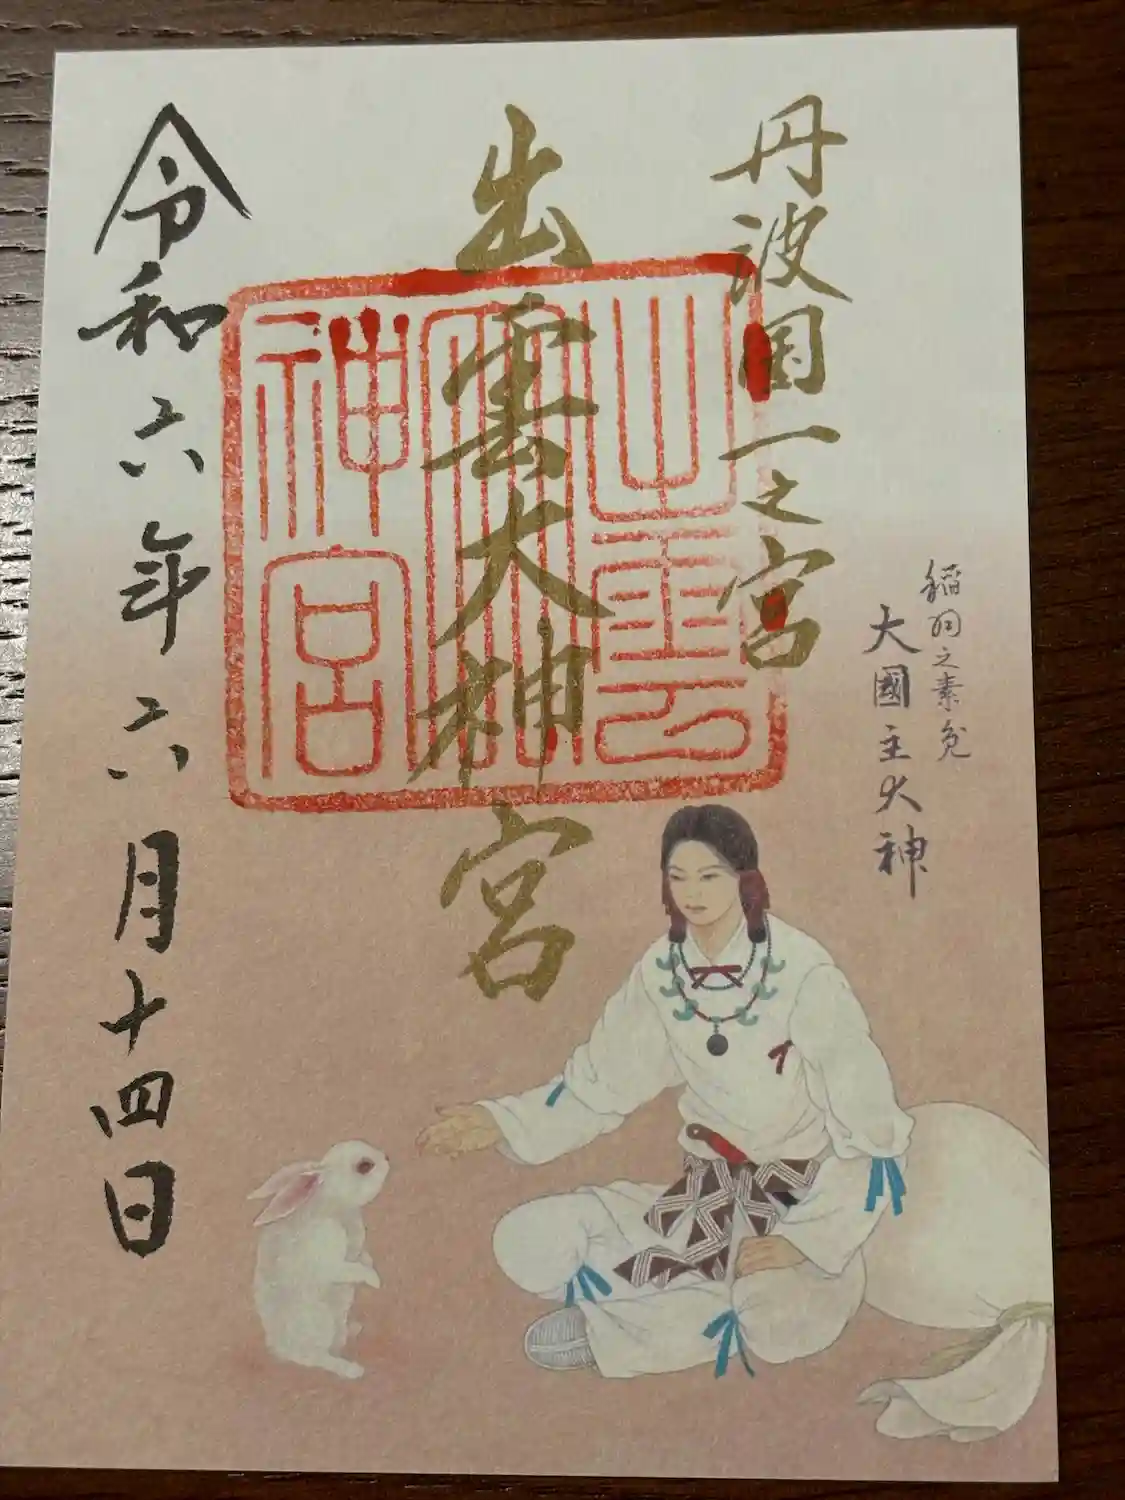 稲羽之素兔
大國主大神
丹波国一之宮
出雲大神宮
出雲大神宮
令和六年六月十四日